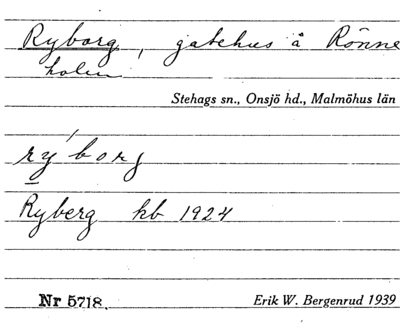 Ryborg, gatehus å Rönne
holm
Stehags sn., Onsjö hd., Malmöhus län
rýborg
Ryberg kb 1924
Nr 5718.
Erik W. Bergenrud 1939